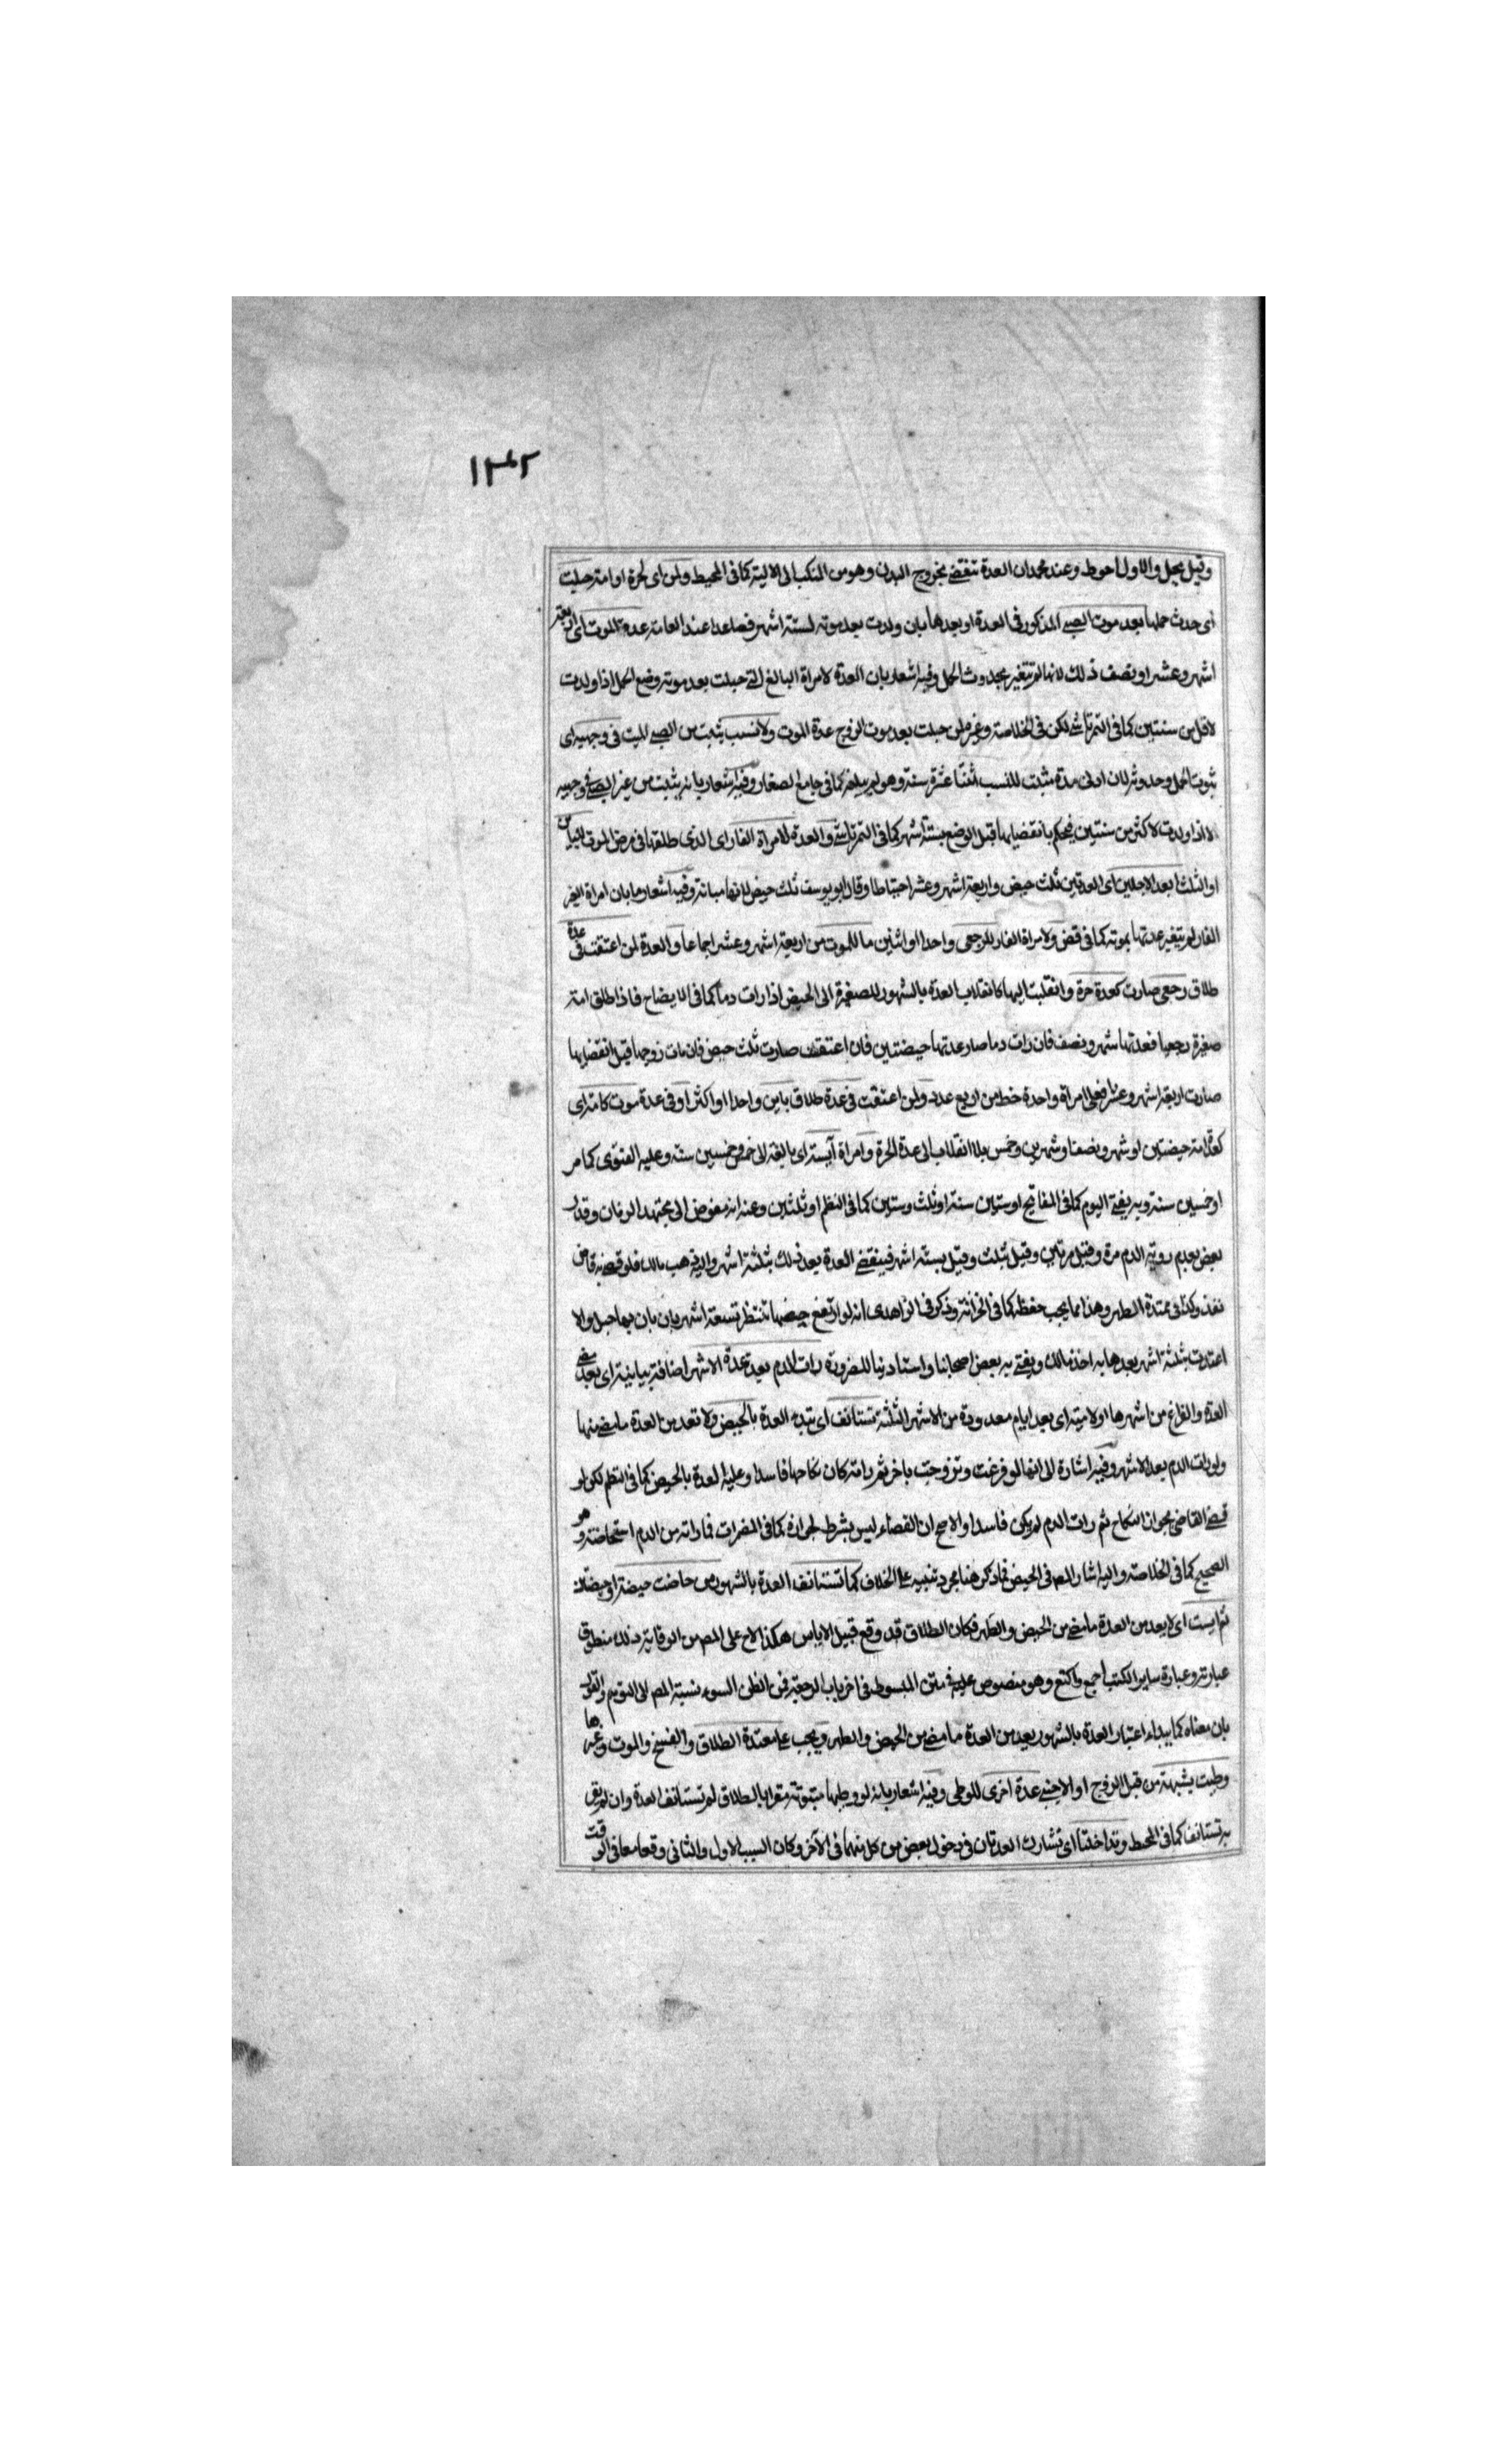 ١٣٤٢
وقيل يحل والاول احوط وعند محمدان العدة تنقضي بخروج البدن وهو من المنكب الى الالية كما في المحيط ولمن اى لحرة او امة حبلت
اى حدث حملها بعد موت الصبي المذكور في العدة او بعدها بان ولدت بعد موته لستة اشهر فصاعدا عند العامة عدة الموت اى اربعة
اشهر وعشر او نصف ذلك لانها لم تتغير بحدوث الحمل وفيه اشعار بان العدة لامراة البالغ التي حبلت بعد موته وضع الحمل اذا ولدت
لاقل من سنتين كما في التمرتاشي لكن في الخلاصة وغيره لمن حبلت بعد موت الزوج عدة الموت ولا نسب يثبت من الصبي الميت في وجهيه اى
ثبوت الحمل وحدوثه لان ادنى مدة مثبت للنسب اثنتا عشرة سنة وهو لم يبلغه كما في جامع الصغار وفيه اشعار بانه يثبت من غير الصبي في وجهيه
لا اذا ولدت لاكثر من سنتين فيحكم بانقضائها قبل الوضع بستة اشهر كما في التمرتاشي والعدة لامراة الفار اى الذى طلقها في مرض الموت للباين
او الثلث ابعد الاجلين اى العدتين ثلث حيض واربعة اشهر وعشر احتياطا وقال ابو يوسف ثلث حيض لانها مبانة وفيه اشعار ما بان امراة الغير
الفار لم يتغير عدتها بموته كما في قض ولامراة الفار للرجعى واحدا او اثنين ما للموت من اربعة اشهر وعشر اجماعا والعدة لمن اعتقت في عدة
طلاق رجعى صارت كعدة حرة وانقلبت اليها كانقلاب العدة بالشهور للصغيرة الى الحيض اذا رات دما كما في الايضاح فاذا طلق امة
صغيرة رجعيا فعدتها شهر ونصف فان رات دما صار عدتها حيضتين فان اعتقت صارت ثلث حيض فان مات زوجها قبل انقضائها
صارت اربعة اشهر وعشرا فعلى امراة واحدة خط من اربع عدد ولمن اعتقت في عدة طلاق باين واحدا او اكثر او في عدة موت كامة اى
كعدة امة حيضتين او شهر ونصف او شهرين وخمس بلا انقلاب الى عدة الحرة وامراة آيسة اى بالغة الى خمس وخمسين سنة وعليه الفتوى كما مر
او خمسين سنة وبه يفتى اليوم كما في المفاتيح او ستين سنة او ثلث وستين كما في النظم او ثلثين وعنه انه مفوض الى مجتهد الزمان وقدر
بعض بعدم روية الدم مرة وقيل مرتين وقيل بثلث وقيل بستة اشهر فينقضي العدة بعد ذلك بثلثة اشهر واليه ذهب مالك فلو قضى به قاض
نفذ وكذا في ممتدة الطهر وهذا مما يجب حفظه كما في الخزانة وذكر في الزاهدى انه لو ارتفع حيضها تنتظر تسعة اشهر بان بان بها حبل والا
اعتدت بثلثة اشهر بعدها به اخذ مالك ويفتى به بعض اصحابنا واستادنيا للضرورة رات الدم بعد عدة الاشهر اضافة بيانية اى بعد مضى
العدة والفراغ من اشهرها او لامية اى بعد ايام معدودة من الاشهر الثلثة تستانف اى تبدء العدة بالحيض ولا تعد من العدة ما مضى منها
ولو رات الدم بعد الاشهر وفيه اشارة الى انها لو فرغت وتزوجت باخر ثم راته كان نكاحها فاسدا وعليه العدة بالحيض كما في النظم لكن لو
قضى القاضى بجواز النكاح ثم رات الدم لم يكن فاسدا والاصح ان القضاء ليس بشرط لجوازه كما في المضمرات فما راته من الدم استحاضة وهو
الصحيح كما في الخلاصة واليه اشار المص في الحيض فما ذكر هنا مجرد تنبيه على الخلاف كما تستانف العدة بالشهور من حاضت حيضة او حيضتان
ثم ايست اى لا يعد من العدة ما مضى من الحيض والطهر فكان الطلاق قد وقع قبيل الاياس هكذا لاح على المص من الوقاية وذلك منطوق
عبارته وعبارة ساير الكتب اجمع واكتع وهو منصوص عليه في متن المبسوط في اخر باب الرجعة فمن الظن السوء نسبة المص الى التوهم والقول
بان معناه كما يبداء اعتبار العدة بالشهور يعد من العدة ما مضى من الحيض والطهر ويجب على معتدة الطلاق والفسخ والموت وغيرها
وطيت بشبهة من قبل الزوج او الاجنبي عدة اخرى للوطى وفيه اشعار بانه لو وطيها مبتوتة مقرا بالطلاق لم تستانف العدة وان لم يقر
به تستانف كما في المحيط وتداخلتا اى تشارك العدتان في دخول بعض من كل منهما في الآخر وكان السبب الاول والثاني وقعا معا في الوقت